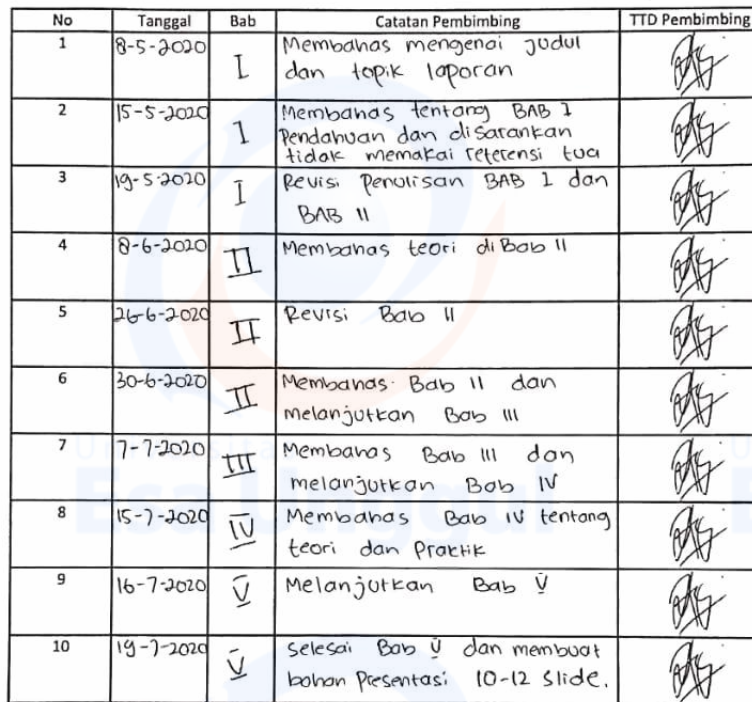 No Tanggal Bab Catatan Pembimbing TTD Pembimbing
1 8-5-2020 I Membahas mengenai judul
dan topik laporan
2 15-5-2020 I Membahas tentang BAB I
Pendahuan dan disarankan
tidak memakai referensi tua
3 19-5-2020 I Revisi Penulisan BAB I dan
BAB II
4 8-6-2020 II Membahas teori di Bab II
5 26-6-2020 II Revisi Bab II
6 30-6-2020 II Membahas Bab II dan
melanjutkan Bab III
7 7-7-2020 III Membahas Bab III dan
melanjutkan Bab IV
8 15-7-2020 IV Membahas Bab IV tentang
teori dan Praktik
9 16-7-2020 V Melanjutkan Bab V
10 19-7-2020 V selesai Bab V dan membuat
bahan Presentasi 10-12 slide.
Universitas
Esa Unggul